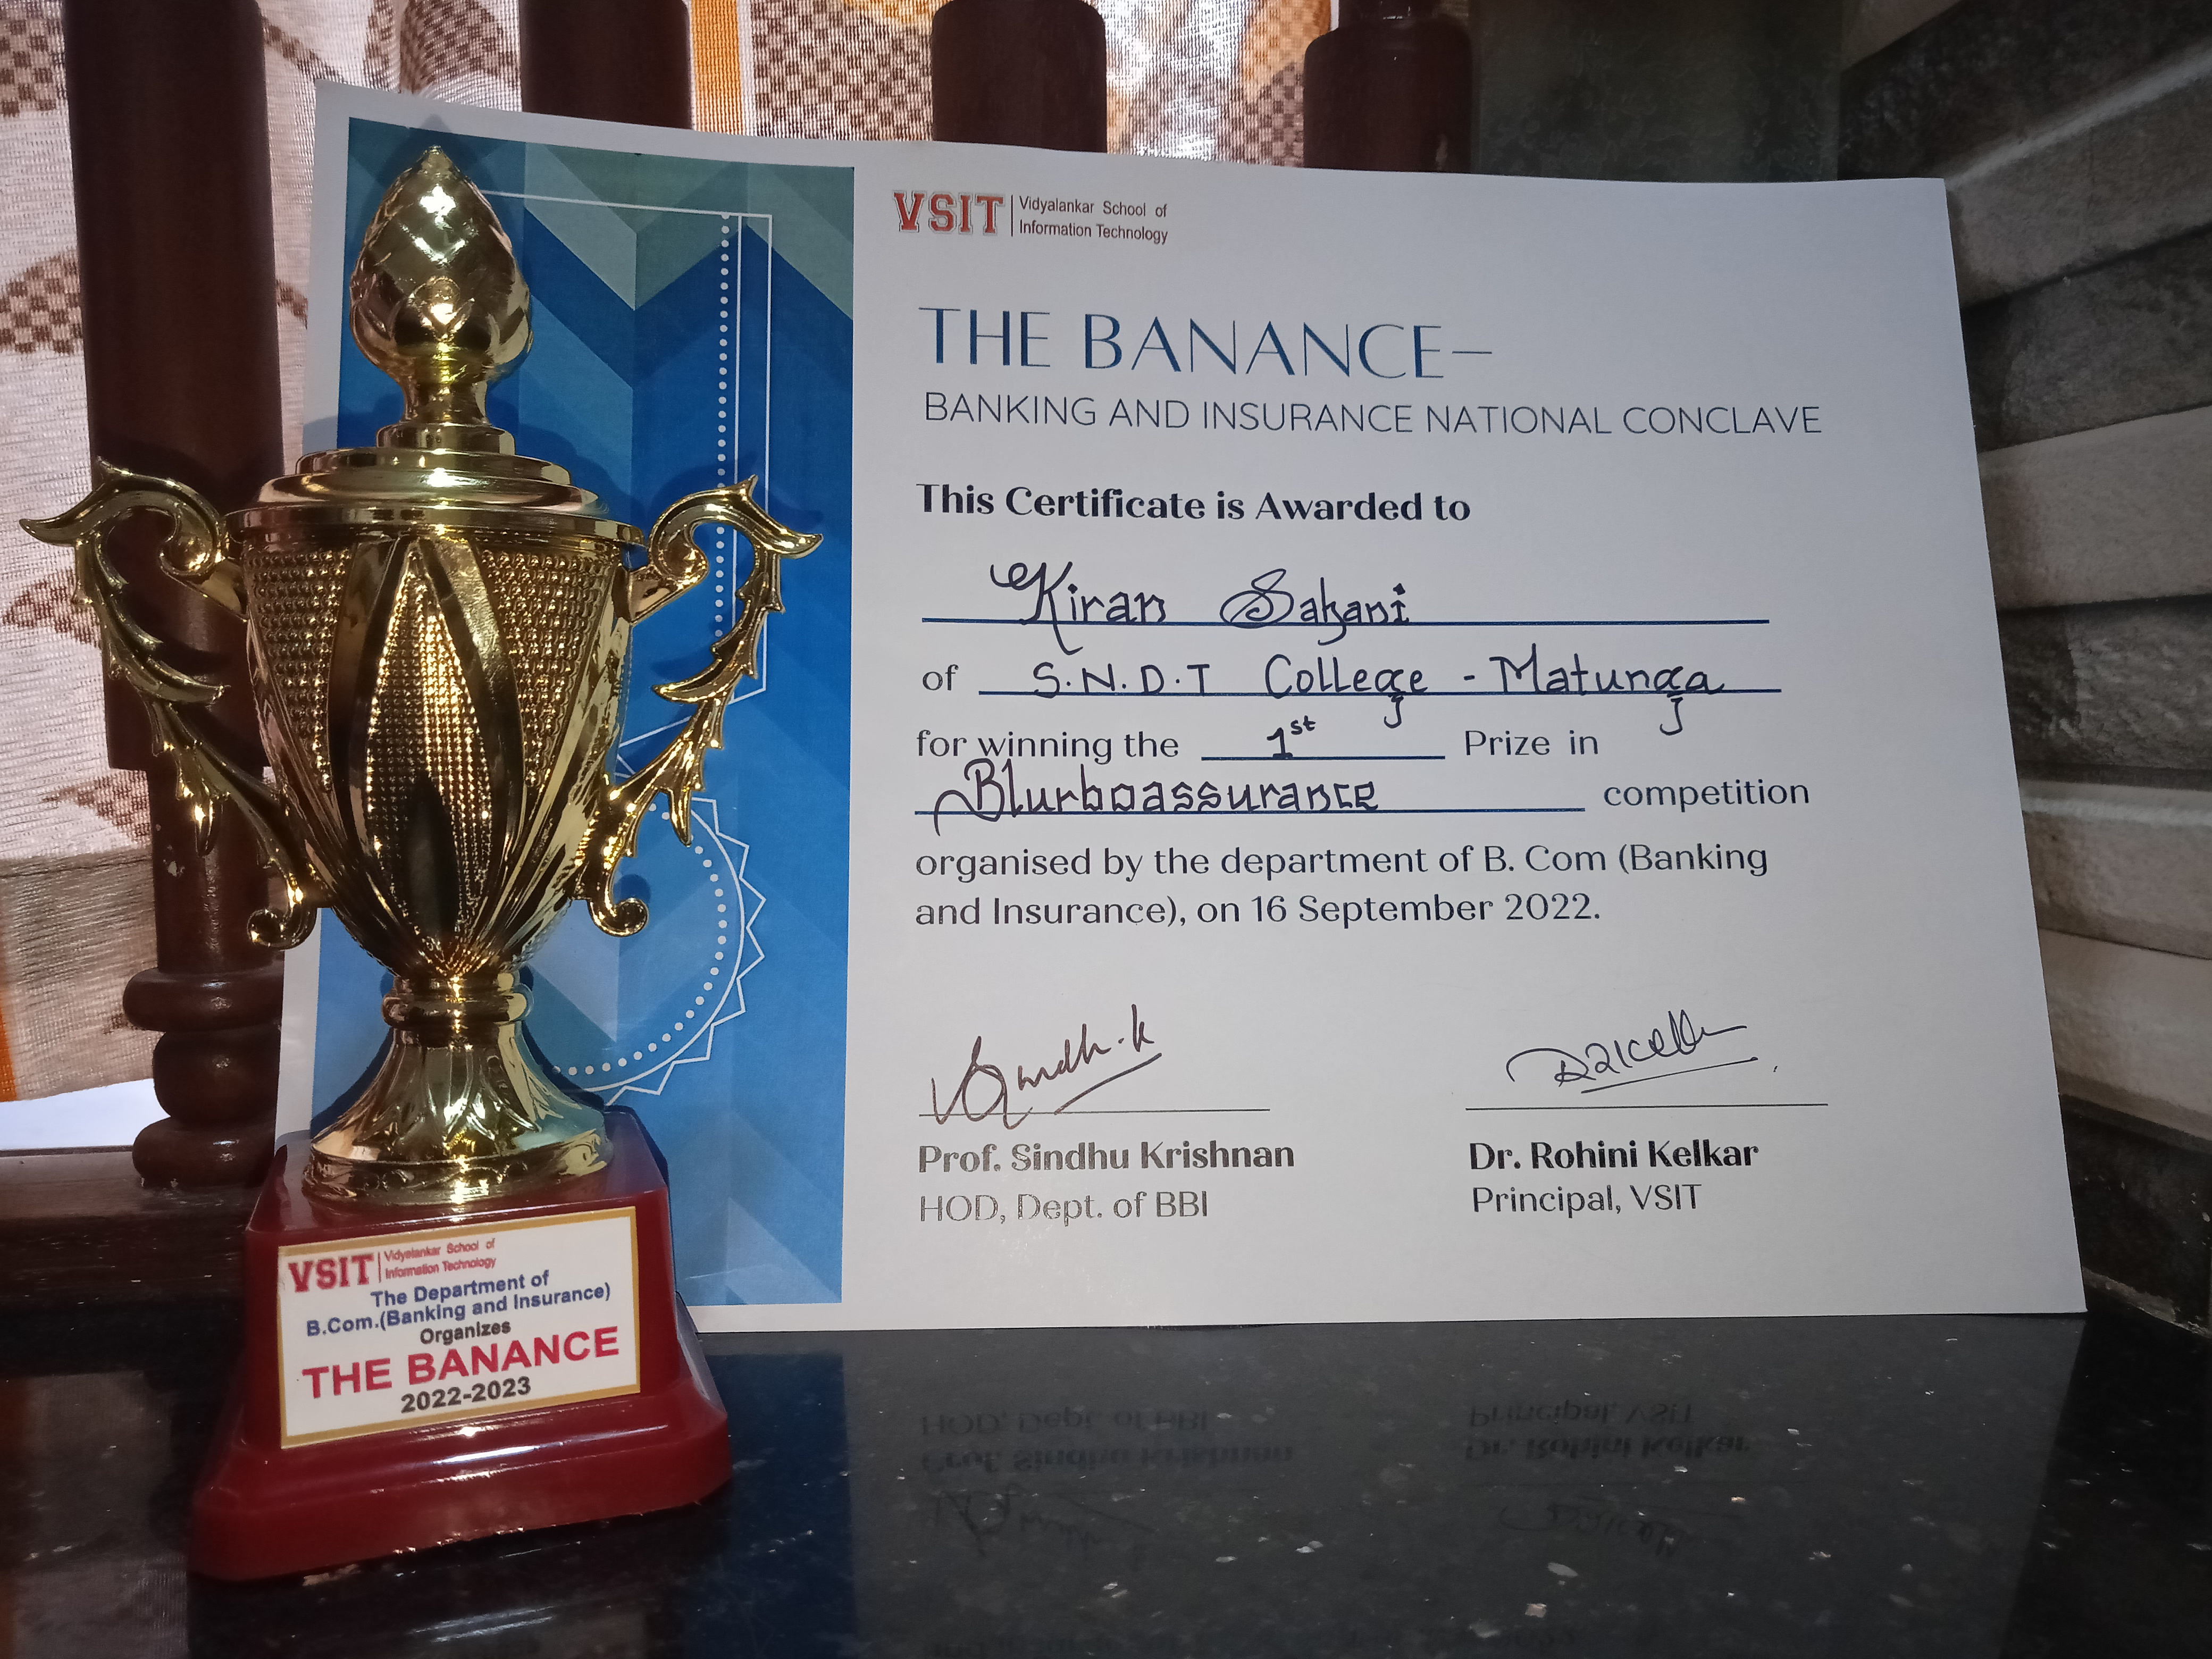 VSIT
Vidyalankar School of
Information Technology
THE BANANCE—
BANKING AND INSURANCE NATIONAL CONCLAVE
This Certificate is Awarded to
Kiran Sahani
of S.N.D.T College - Matunga
for winning the 1st Prize in
Blurboassurance competition
organised by the department of B. Com (Banking
and Insurance), on 16 September 2022.
Prof. Sindhu Krishnan
HOD, Dept. of BBI
Dr. Rohini Kelkar
Principal, VSIT
VSIT
Vidyalankar School of
Information Technology
The Department of
B.Com.(Banking and Insurance)
Organizes
THE BANANCE
2022-2023